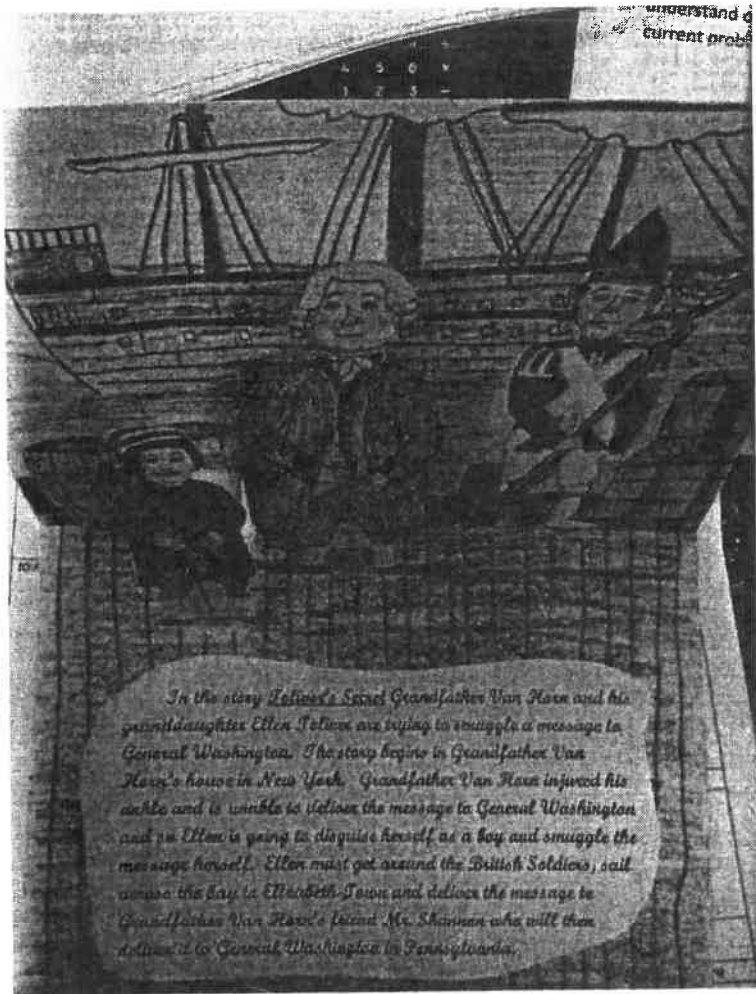 understand d
current prob
4 5 6 ×
1 2 3 −
In the story Toliver's Secret Grandfather Van Horn and his
granddaughter Ellen Toliver are trying to smuggle a message to
General Washington. The story begins in Grandfather Van
Horn's house in New York. Grandfather Van Horn injured his
ankle and is unable to deliver the message to General Washington
and so Ellen is going to disguise herself as a boy and smuggle the
message herself. Ellen must get around the British Soldiers, sail
across the bay to Elizabeth-Town and deliver the message to
Grandfather Van Horn's friend Mr. Shannon who will then
deliver it to General Washington in Pennsylvania.